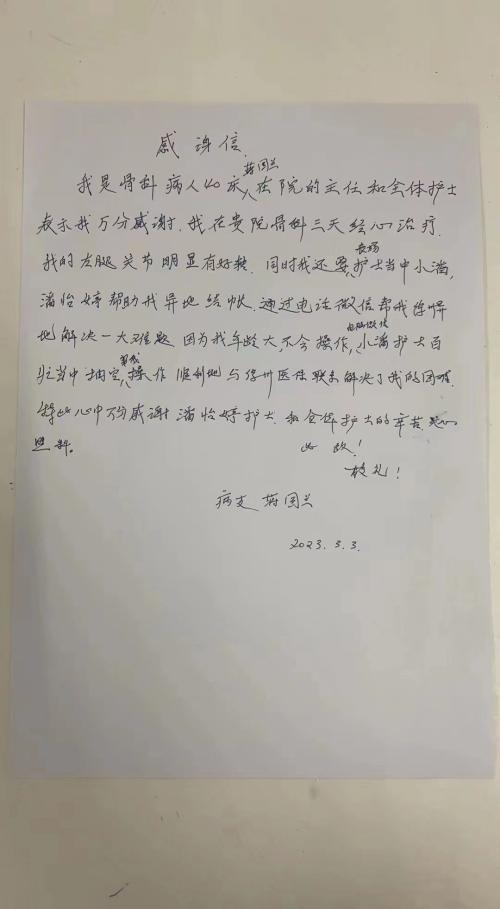 感谢信
我是骨科病人40床蒋国兰在院的主任和全体护士
表示我万分感谢。我在贵院骨科三天经心治疗.
我的左腿关节明显有好转.同时我还要表扬护士当中小潘,
潘怡婷帮助我异地结帐.通过电话微信帮我
地解决一大难题 因为我年龄大,不会操作,小潘护士百
忙当中抽空,操作 顺利地与徐州医保联系解决了我的困难.
特此心中万分感谢潘怡婷护士.和全体护士的辛苦
照料。
此致!
敬礼!
病支 蒋国兰
2023.3.3.